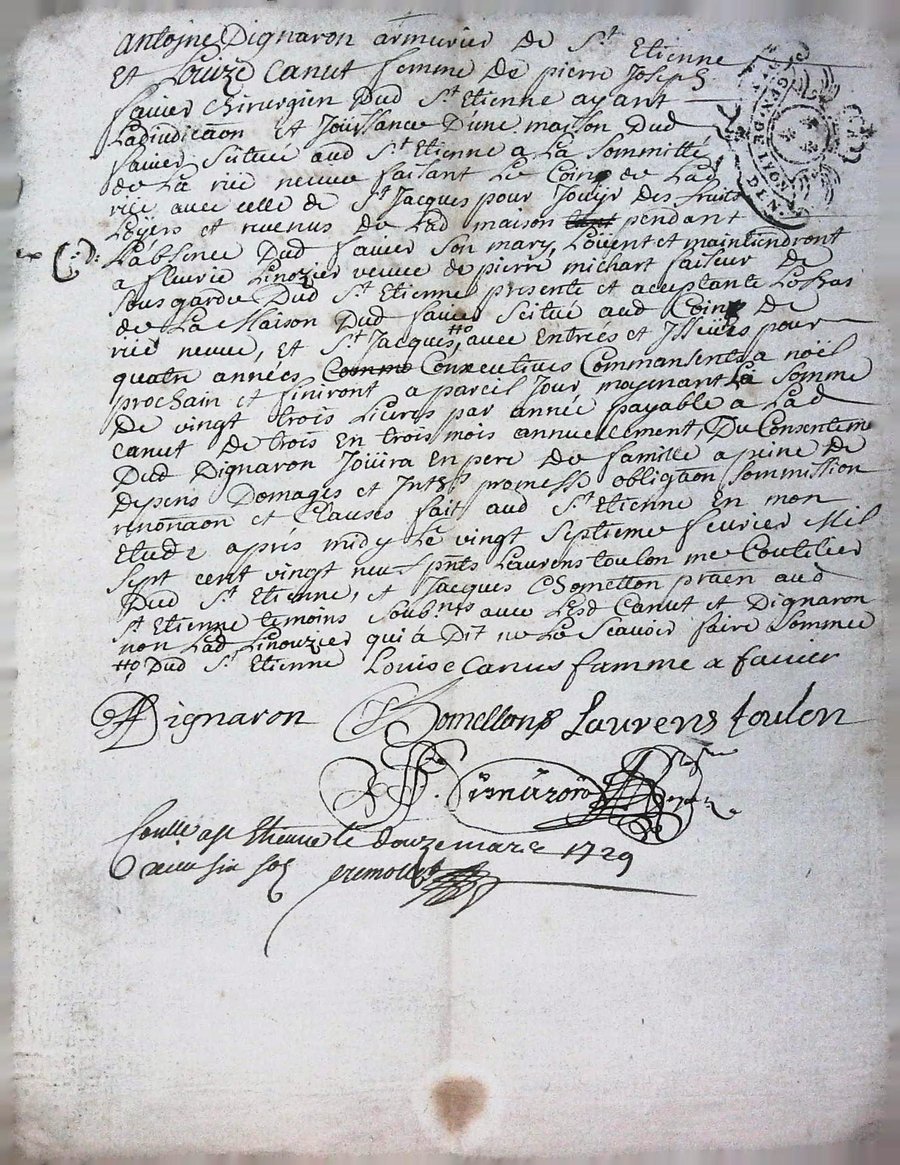 Antoine Dignaron armurier de St Etienne
Et Louize Canut femme de pierre Joseph
favier chirurgien Dud St Etienne ayant
Ladjudicãon Et Joüissance D'une maison Dud
favier Scituée aud St Etienne a La Sommitté
de La rüe neuve faisant Le Coing de Lad
rüe avec celle de St Jacques pour Joüyr des fruits
Loÿers et revenus de Lad maison pendant
L'absence Dud favier Son mary, Loüent et maintiendront
a fleurie Linozier veuve de pierre michart faiseur de
Sousgarde Dud St Etienne présente et aceptante Le bas
de La Maison Dud favier Scitué aud Coing de
rüe neuve, Et St Jacques, avec Entrées et Issües pour
quatre années Consecutives Commansents a noël
prochain et finiront a pareil Jour moyenant La Somme
De vingt trois Livres par année payable a Lad
Canut De trois En trois mois annuellement, Du Consenteme
Dud Dignaron Joüira En pere De famille a peine de
Depens Domages et Intts promesse obligãon Sommission
renonãon et Clauses fait aud St Etienne En mon
Etude après midy Le vingt Septieme fevrier Mil
Sept cent vingt neuf pnts Laurens toulon me Coutelier
Dud St Etienne, et Jacques Chometton praen aud
St Etienne temoins Soubnés avec Lesd Canut et Dignaron
non Lad Linouzier qui a Dit ne Le Scavoir faire Sommée
Dud St Etienne Louise Canus famme a favier
ADignaron Chomettong Laurens toulon
Conlle a St Etienne le douze mars 1729
Receu six sols